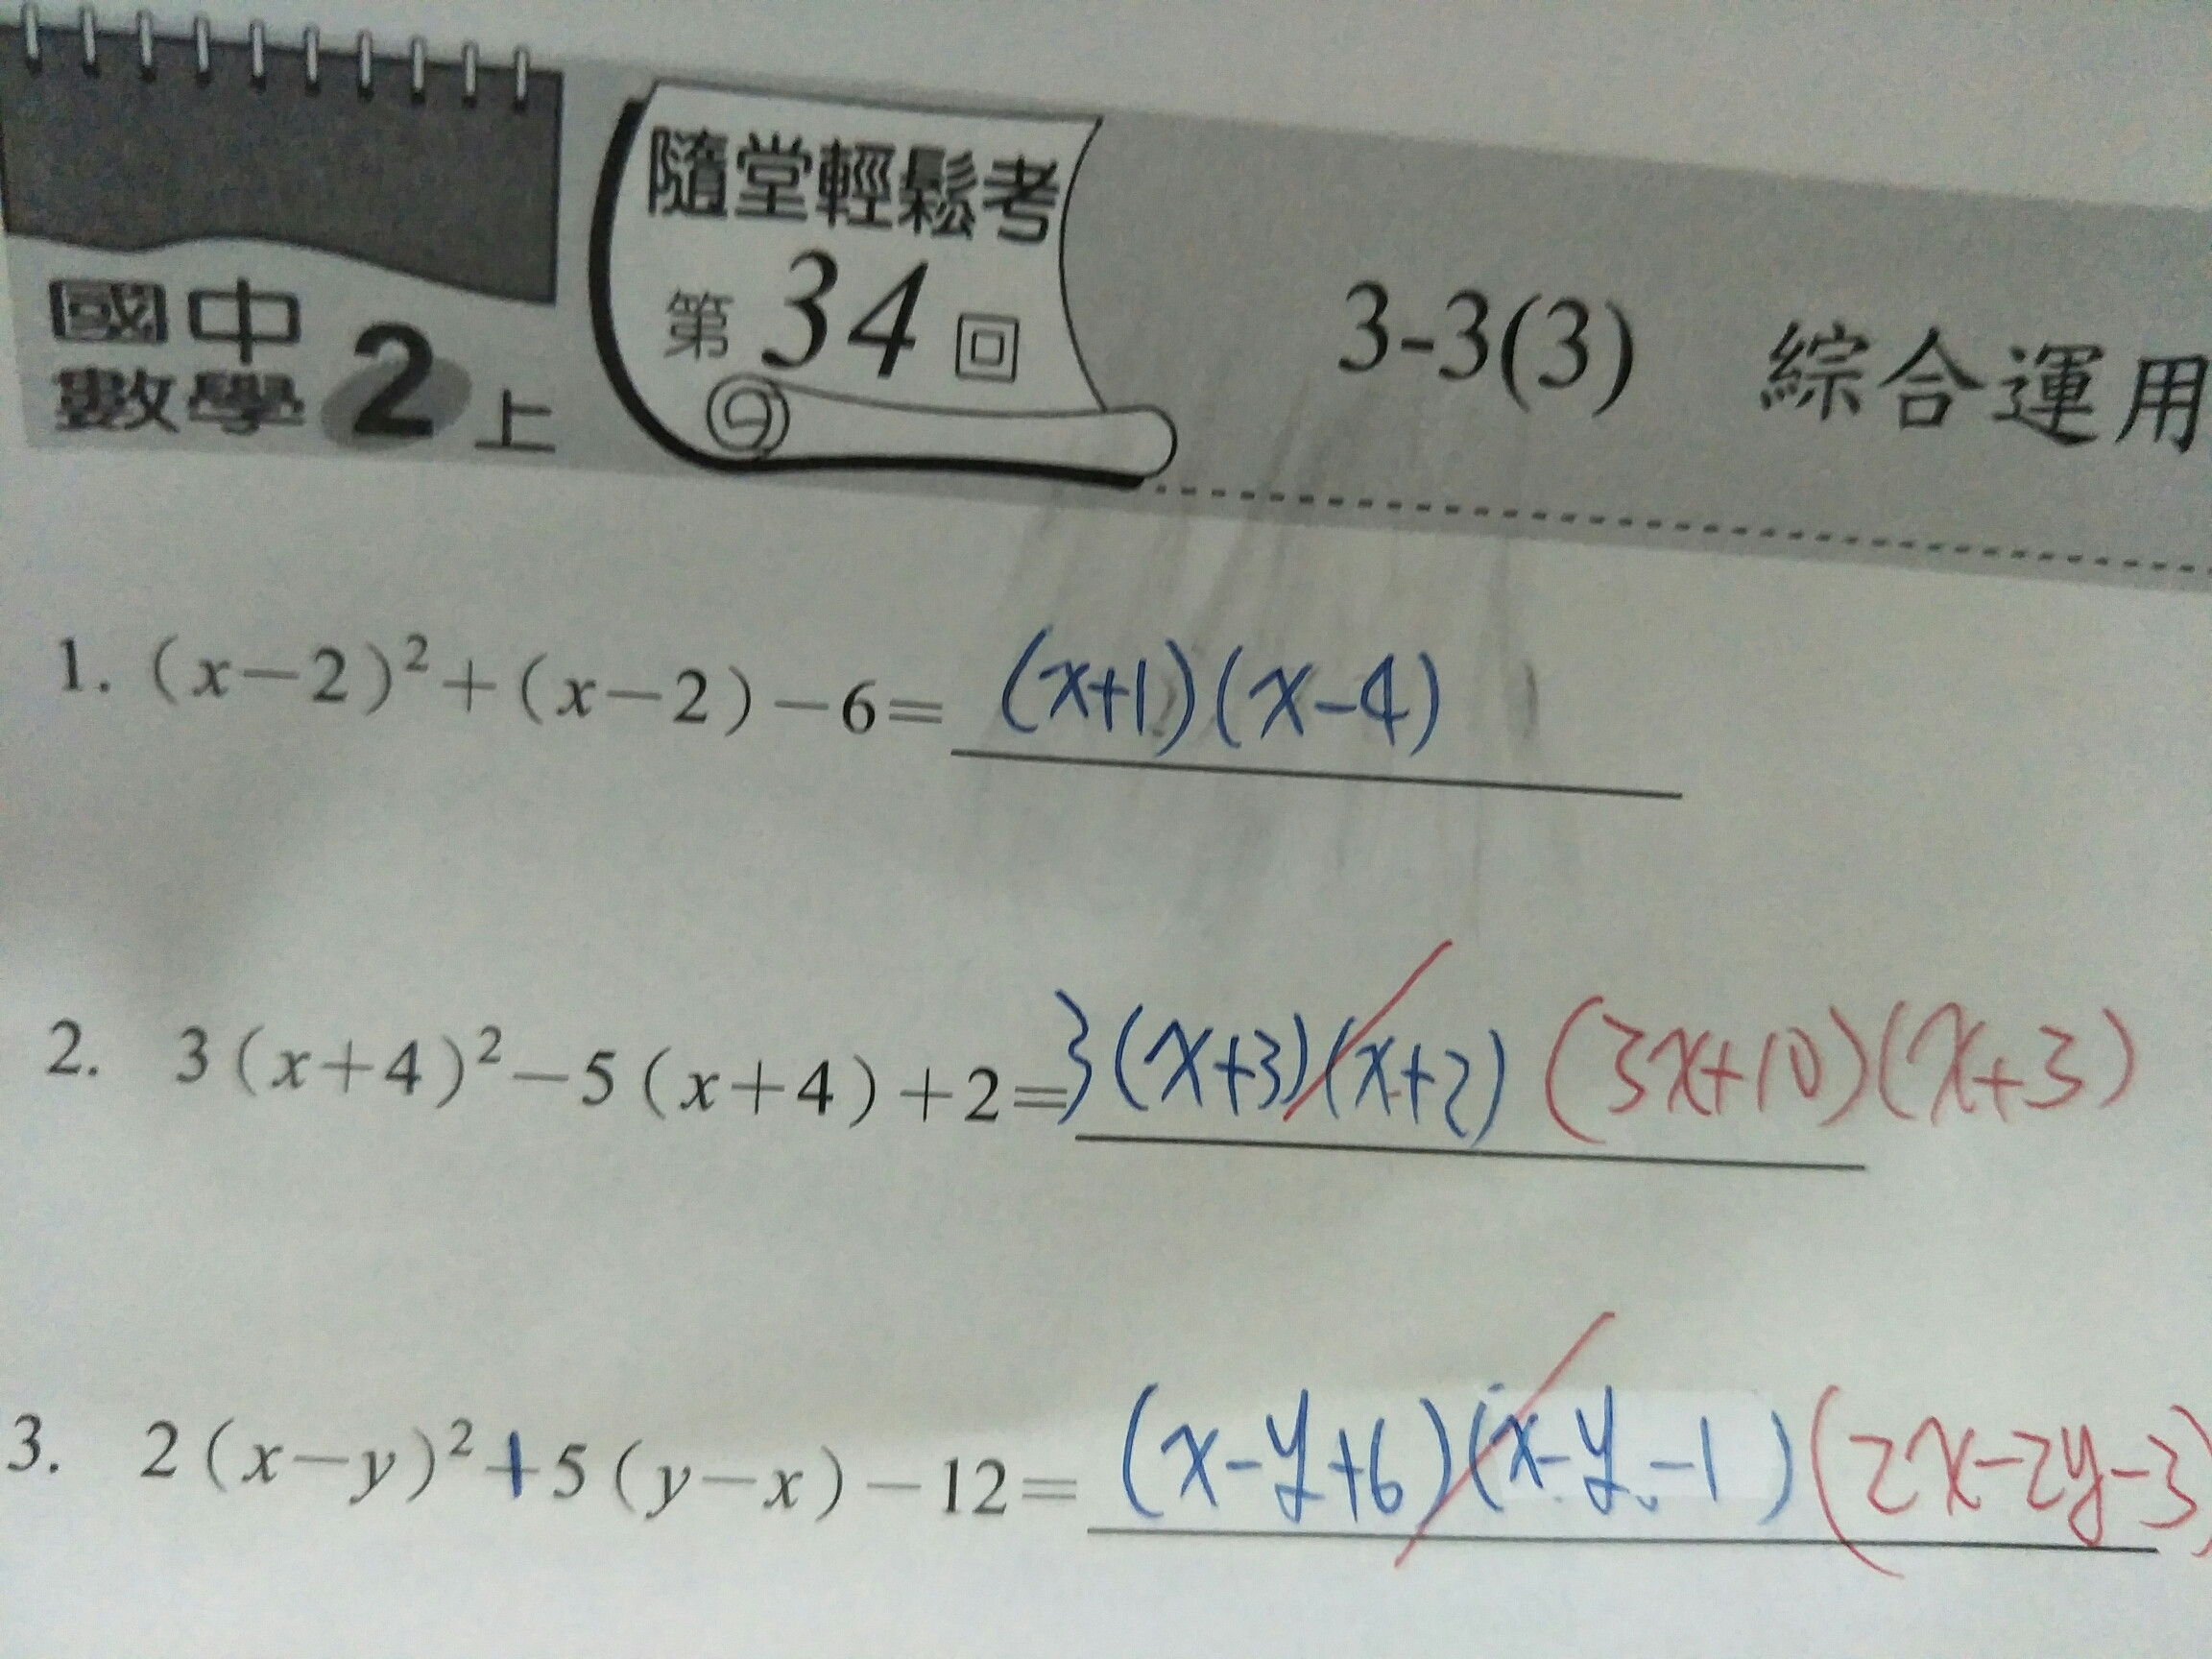 國中
數學2上
隨堂輕鬆考
第34回
3-3(3) 綜合運用
1. (x-2)²+(x-2)-6= (x+1)(x-4)
2. 3(x+4)²-5(x+4)+2= 3(x+3)(x+2) (3x+10)(x+3)
3. 2(x-y)²+5(y-x)-12= (x-y+6)(x-y-1) (2x-2y-3)